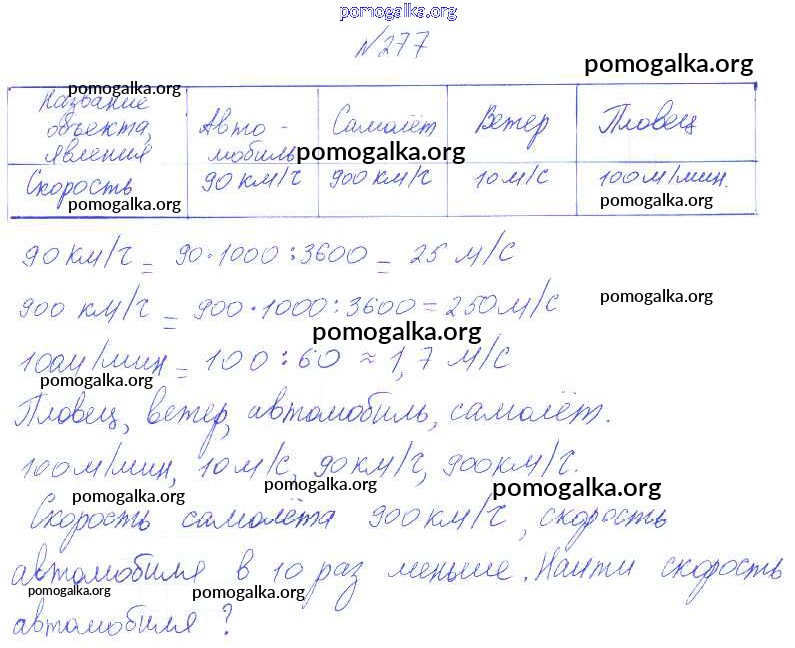 pomogalka.org
№277
pomogalka.org
Название объекта, явления | Авто-мобиль | Самолёт | Ветер | Пловец
pomogalka.org
pomogalka.org
Скорость | 90 км/ч | 900 км/ч | 10 м/с | 100 м/мин.
pomogalka.org pomogalka.org
90 км/ч = 90·1000:3600 = 25 м/с
900 км/ч = 900·1000:3600 = 250 м/с
pomogalka.org
pomogalka.org
100м/мин = 100:60 ≈ 1,7 м/с
pomogalka.org
Пловец, ветер, автомобиль, самолёт.
100м/мин, 10 м/с, 90 км/ч, 900км/ч.
pomogalka.org pomogalka.org pomogalka.org
Скорость самолёта 900 км/ч, скорость
автомобиля в 10 раз меньше. Найти скорость
pomogalka.org pomogalka.org
автомобиля?
pomogalka.org